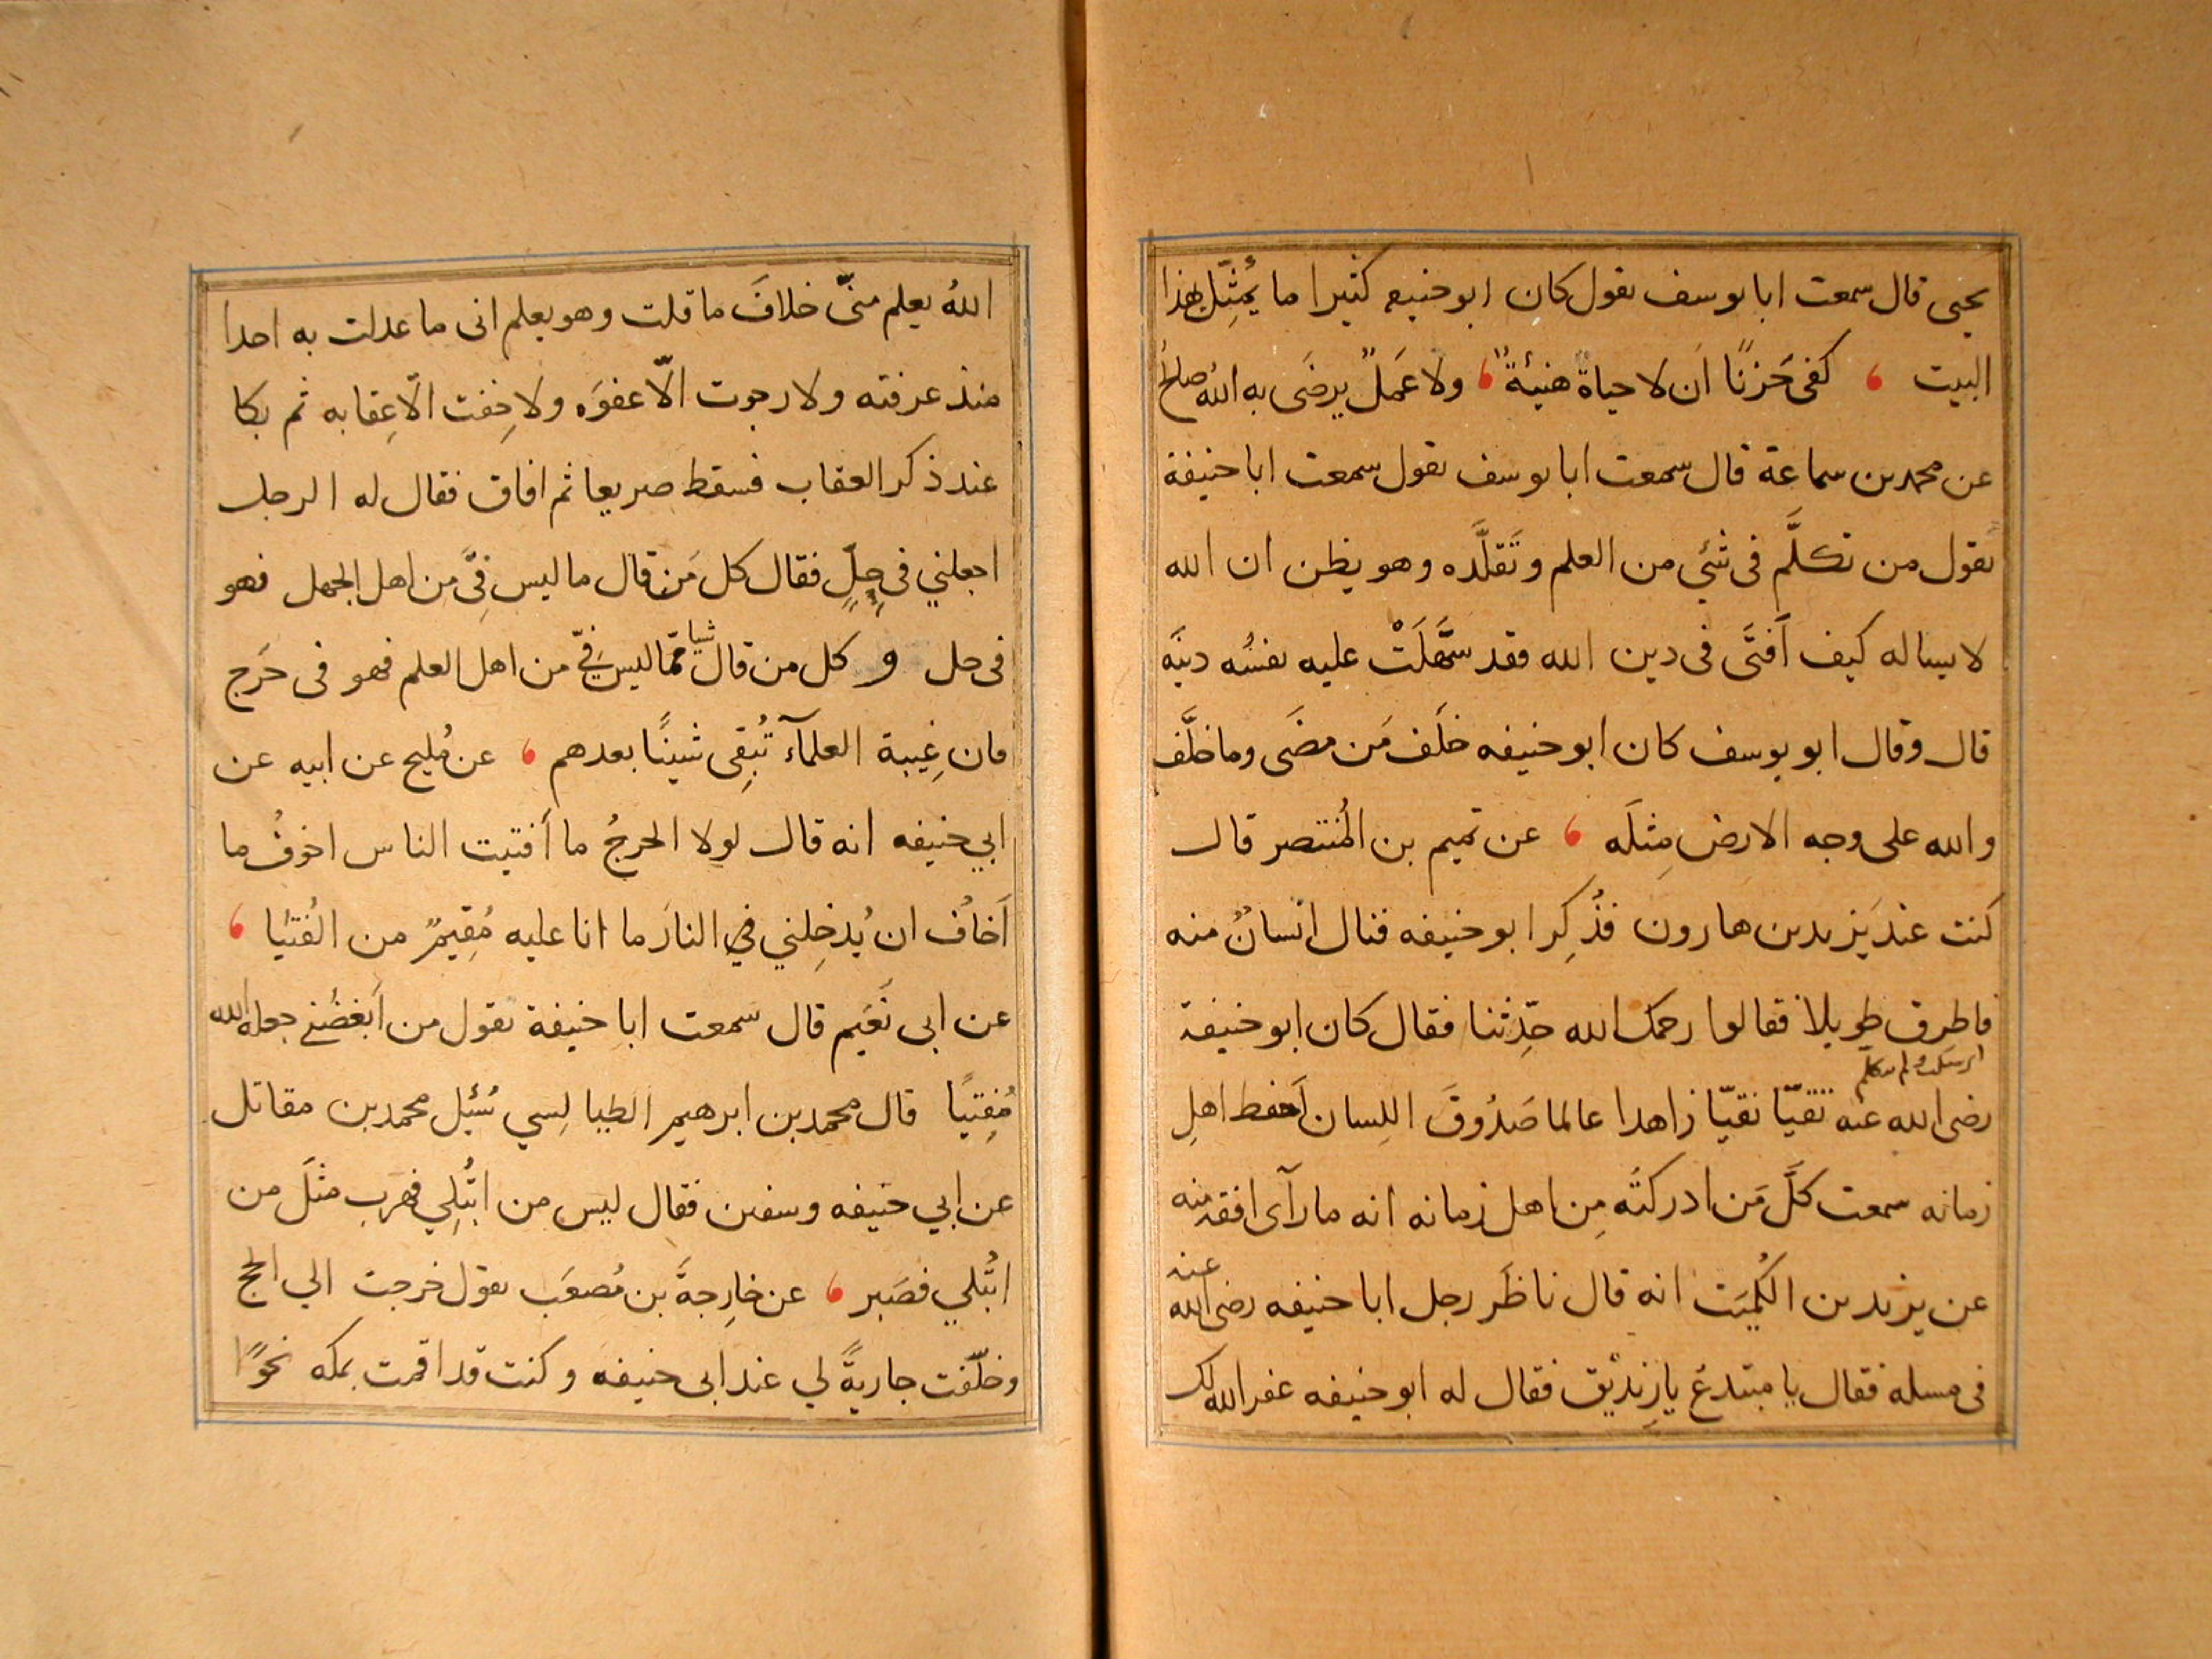 يحيى قال سمعت ابا يوسف يقول كان ابو حنيفه كثيرا ما يُمَثِّل بهذا
البيت ، كفى حَزنًا اَن لا حياةٌ هنيئةٌ ، ولا عَمَلٌ يرضَى به اللهُ صالحُ
عن محمد بن سماعة قال سمعت ابا يوسف يقول سمعت ابا حنيفة
يقول من تكلَّم فى شئ من العلم وتَقلَّده وهو يظن ان الله
لا يساله كيف اَفتَى فى دين الله فقد سَهَّلَتْ عليه نفسُه دينَه
قال وقال ابو يوسف كان ابو حنيفه خلَف مَن مضَى وما خلَّف
والله على وجه الارض مِثلَه ، عن تميم بن المُنتصر قال
كنت عند يَزيد بن هارون فذُكِر ابو حنيفه فنال انسانٌ منه
فاطرق طويلا فقالوا رحمك الله حَدِّثنا فقال كان ابو حنيفة
اى سكت ولم يتكلم
رضى الله عنه تقيّا نقيّا زاهدا عالما صَدُوقَ اللِسان اَحفظ اهلِ
زمانه سمعت كلَّ مَن ادركتُه مِن اهل زمانه انه ما رآى افقه منه
عن يزيد بن الكُمَيت انه قال ناظَر رجل ابا حنيفه رضى الله عنه
فى مسله فقال يا مبتدع يا زِنديْق فقال له ابو حنيفه غفر الله لك
اللهُ يعلم منىّ خلافَ ما قلت وهو يعلم انى ما عدلت به احدا
منذ عرفته ولا رجوت الّا عفوَه ولا خِفت الّا عِقابه ثم بكا
عند ذكر العقاب فسقط صريعا ثم افاق فقال له الرجل
اجعلني فى حِلٍّ فقال كل مَن قال ما ليس فِىَّ مِن اهل الجهل فهو
فى حل و كل من قال شيا ممّا ليس فيّ من اهل العلم فهو فى حَرَج
فان غِيبة العلمآءَ تُبقِى شينًا بعدهم ، عن مُليح عن ابيه عن
ابي حنيفه انه قال لولا الحرجُ ما اَفتيت الناس اخوفُ ما
اَخافُ ان يُدخِلني في النارَ ما انا عليه مُقِيمٌ من الفُتيا ،
عن ابى نعَيم قال سمعت ابا حنيفة يقول من اَبغضَني جعله الله
مُفتِيًا قال محمد بن ابرهيم الطيالِسي سُئِل محمد بن مقاتل
عن ابي حنيفه وسفين فقال ليس من ابتُلِي فهرَب مثلَ من
ابتُلي فصَبر ، عن خارِجةَ بن مُصعَب يقول خرجت الي الحج
وخلّفت جاريةً لي عند ابى حنيفه وكنت قد اقمت بمكه نحوًا